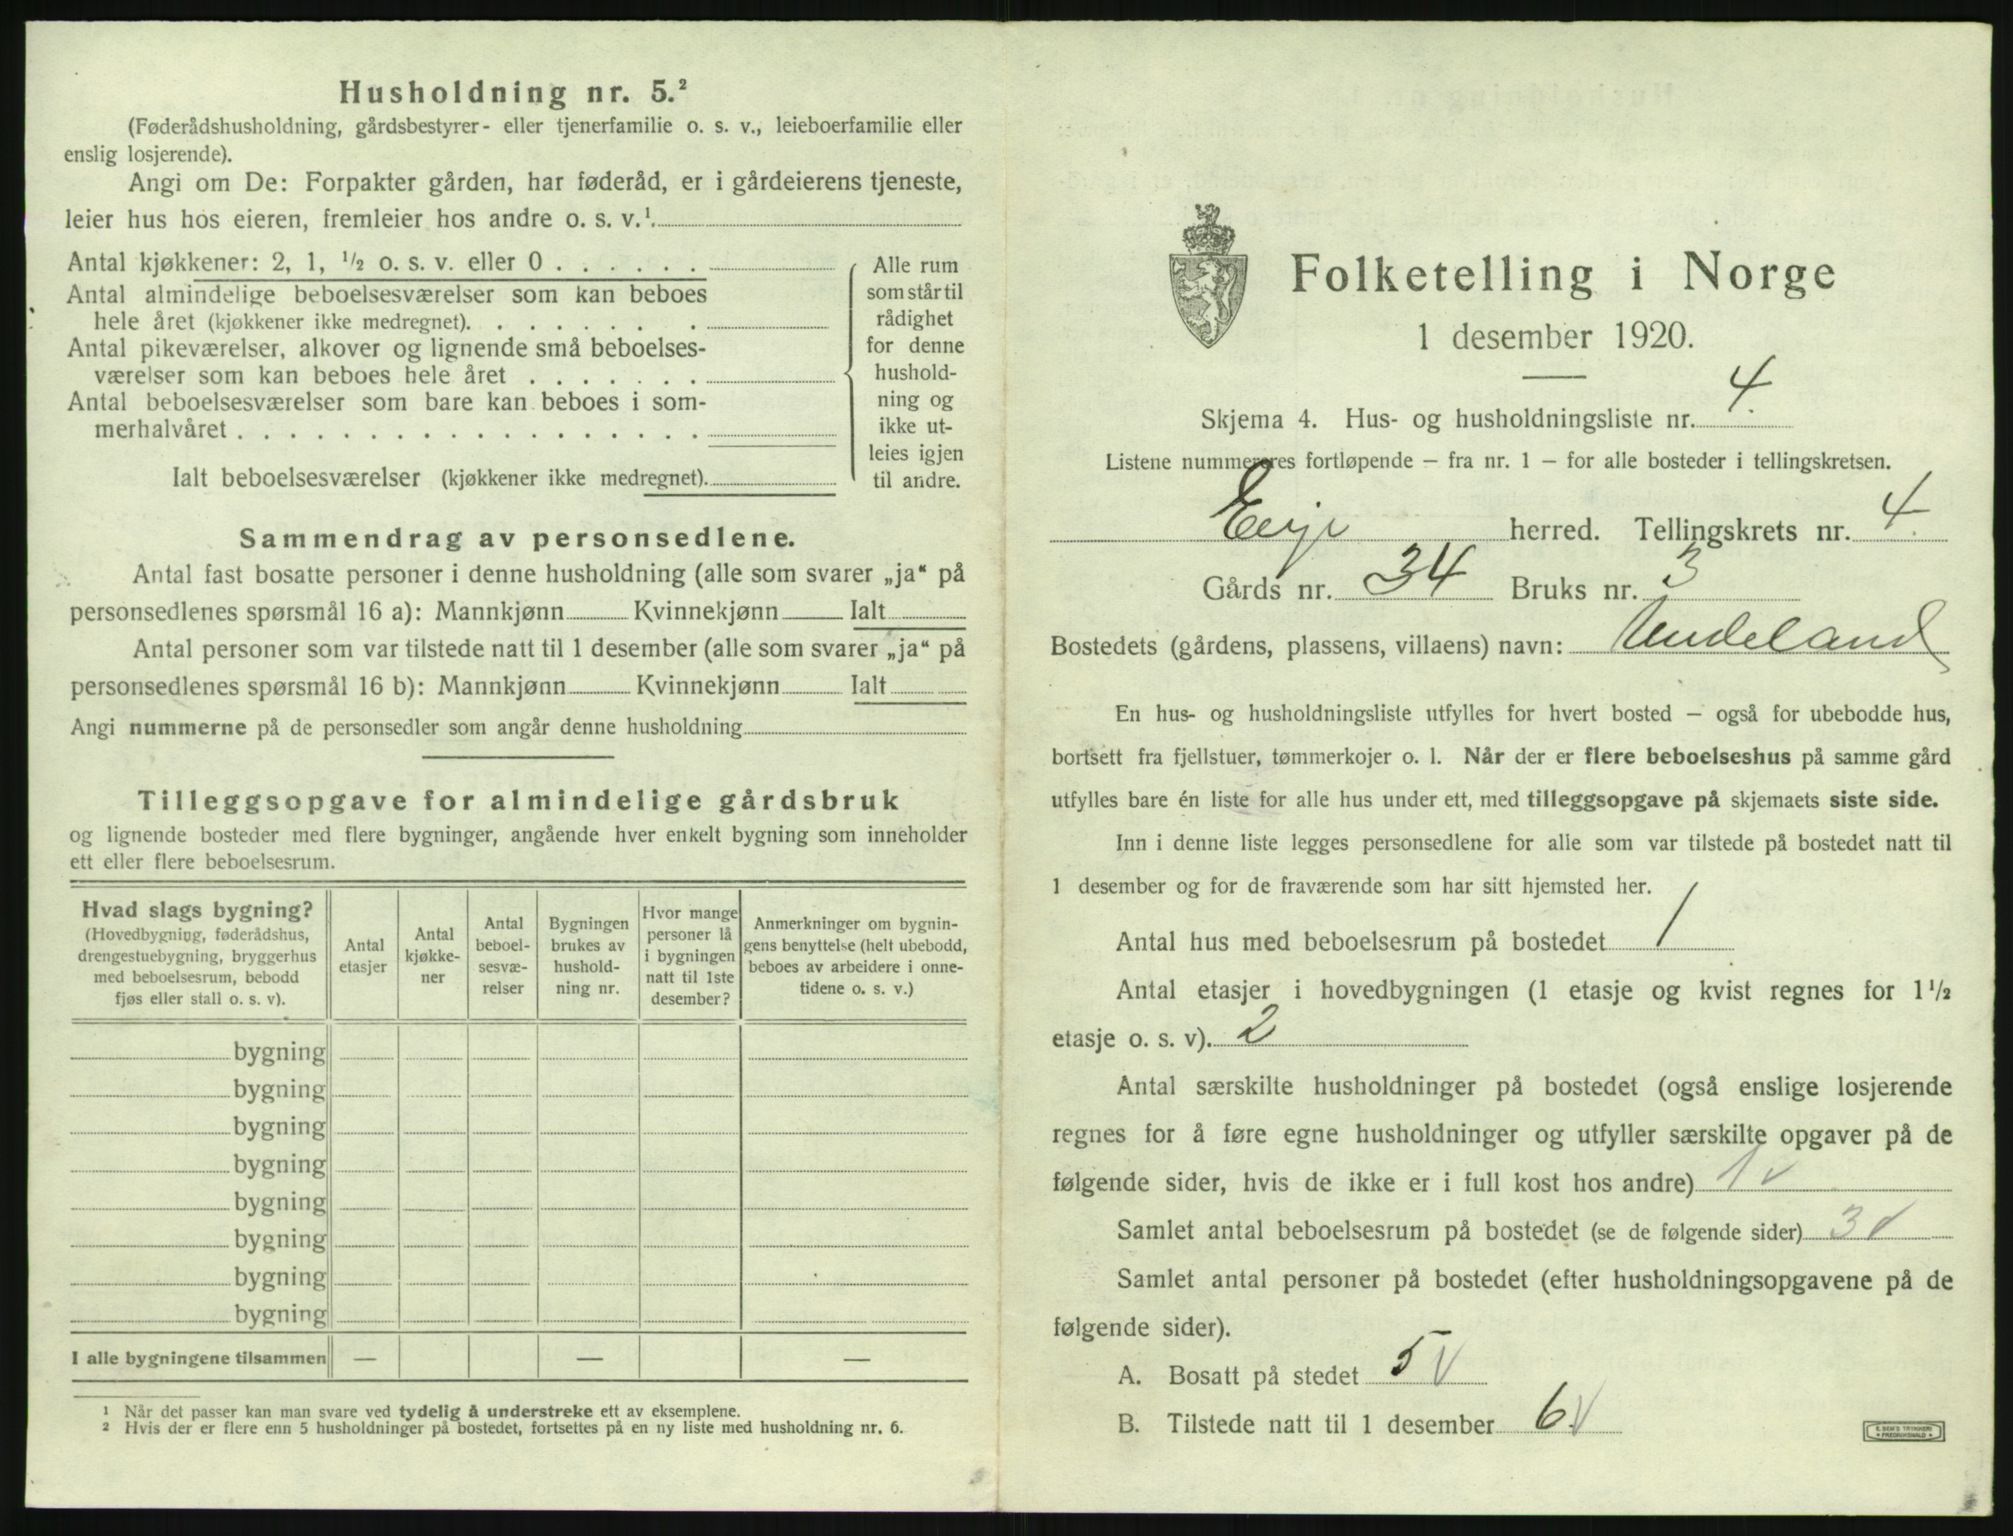 Husholdning nr. 5.²
(Føderådshusholdning, gårdsbestyrer- eller tjenerfamilie o. s. v., leieboerfamilie eller
enslig losjerende).
Angi om De: Forpakter gården, har føderåd, er i gårdeierens tjeneste,
leier hus hos eieren, fremleier hos andre o. s. v.¹
Antal kjøkkener: 2, 1, ½ o. s. v. eller 0 . . . . . .
Antal almindelige beboelsesværelser som kan beboes
hele året (kjøkkener ikke medregnet). . . . . . . . .
Antal pikeværelser, alkover og lignende små beboelses-
værelser som kan beboes hele året . . . . . . .
Antal beboelsesværelser som bare kan beboes i som-
merhalvåret . . . . . . . . . . . . . . . . . .
Ialt beboelsesværelser (kjøkkener ikke medregnet).
Alle rum
som står til
rådighet
for denne
hushold-
ning og
ikke ut-
leies igjen
til andre.
Sammendrag av personsedlene.
Antal fast bosatte personer i denne husholdning (alle som svarer „ja“ på
personsedlenes spørsmål 16 a): Mannkjønn Kvinnekjønn Ialt
Antal personer som var tilstede natt til 1 desember (alle som svarer „ja“ på
personsedlenes spørsmål 16 b): Mannkjønn Kvinnekjønn Ialt
Angi nummerne på de personsedler som angår denne husholdning
Tilleggsopgave for almindelige gårdsbruk
og lignende bosteder med flere bygninger, angående hver enkelt bygning som inneholder
ett eller flere beboelsesrum.
Hvad slags bygning?
(Hovedbygning, føderådshus,
drengestuebygning, bryggerhus
med beboelsesrum, bebodd
fjøs eller stall o. s. v).
Antal
etasjer
Antal
kjøkke-
ner
Antal
beboel-
sesvæ-
relser
Bygningen
brukes av
hushold-
ning nr.
Hvor mange
personer lå
i bygningen
natt til 1ste
desember?
Anmerkninger om bygnin-
gens benyttelse (helt ubebodd,
beboes av arbeidere i onne-
tidene o. s. v.)
bygning
bygning
bygning
bygning
bygning
bygning
bygning
bygning
I alle bygningene tilsammen — — —
¹ Når det passer kan man svare ved tydelig å understreke ett av eksemplene.
² Hvis der er flere enn 5 husholdninger på bostedet, fortsettes på en ny liste med husholdning nr. 6.
Folketelling i Norge
1 desember 1920.
Skjema 4. Hus- og husholdningsliste nr. 4.
Listene nummereres fortløpende – fra nr. 1 – for alle bosteder i tellingskretsen.
herred. Tellingskrets nr. 4.
Gårds nr. 34 Bruks nr. 3
Bostedets (gårdens, plassens, villaens) navn: Undeland
En hus- og husholdningsliste utfylles for hvert bosted – også for ubebodde hus,
bortsett fra fjellstuer, tømmerkojer o. l. Når der er flere beboelseshus på samme gård
utfylles bare én liste for alle hus under ett, med tilleggsopgave på skjemaets siste side.
Inn i denne liste legges personsedlene for alle som var tilstede på bostedet natt til
1 desember og for de fraværende som har sitt hjemsted her.
Antal hus med beboelsesrum på bostedet 1
Antal etasjer i hovedbygningen (1 etasje og kvist regnes for 1½
etasje o. s. v). 2
Antal særskilte husholdninger på bostedet (også enslige losjerende
regnes for å føre egne husholdninger og utfyller særskilte opgaver på de
følgende sider, hvis de ikke er i full kost hos andre) 1 v
Samlet antal beboelsesrum på bostedet (se de følgende sider) 3 v
Samlet antal personer på bostedet (efter husholdningsopgavene på de
følgende sider).
A. Bosatt på stedet 5 v
B. Tilstede natt til 1 desember 6. v